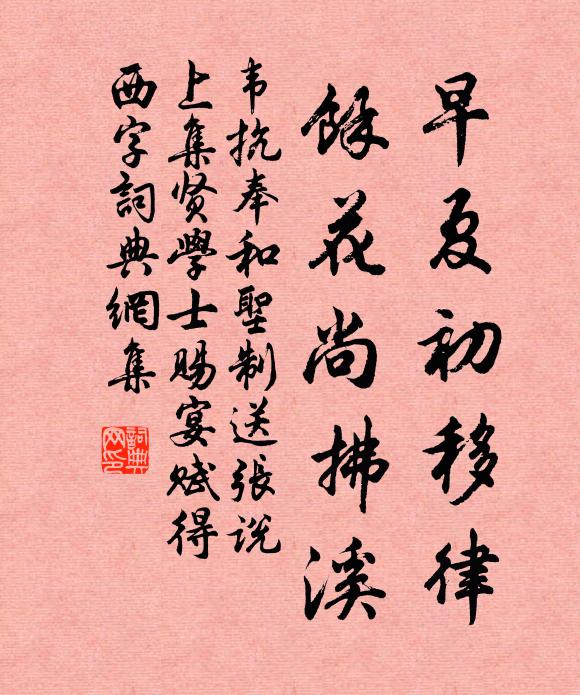 早夏初移律
餘花尚拂溪
韦抗奉和聖制送張说
上集贤學士賜宴赋得
西字詞典網集
詞典网印